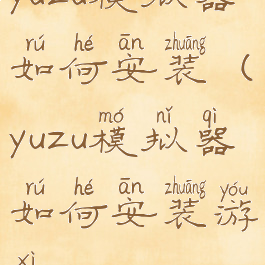 yuzu模拟器
rú hé ān zhuāng
如何安装（
mó nǐ qì
yuzu模拟器
rú hé ān zhuāng yóu
如何安装游
xì